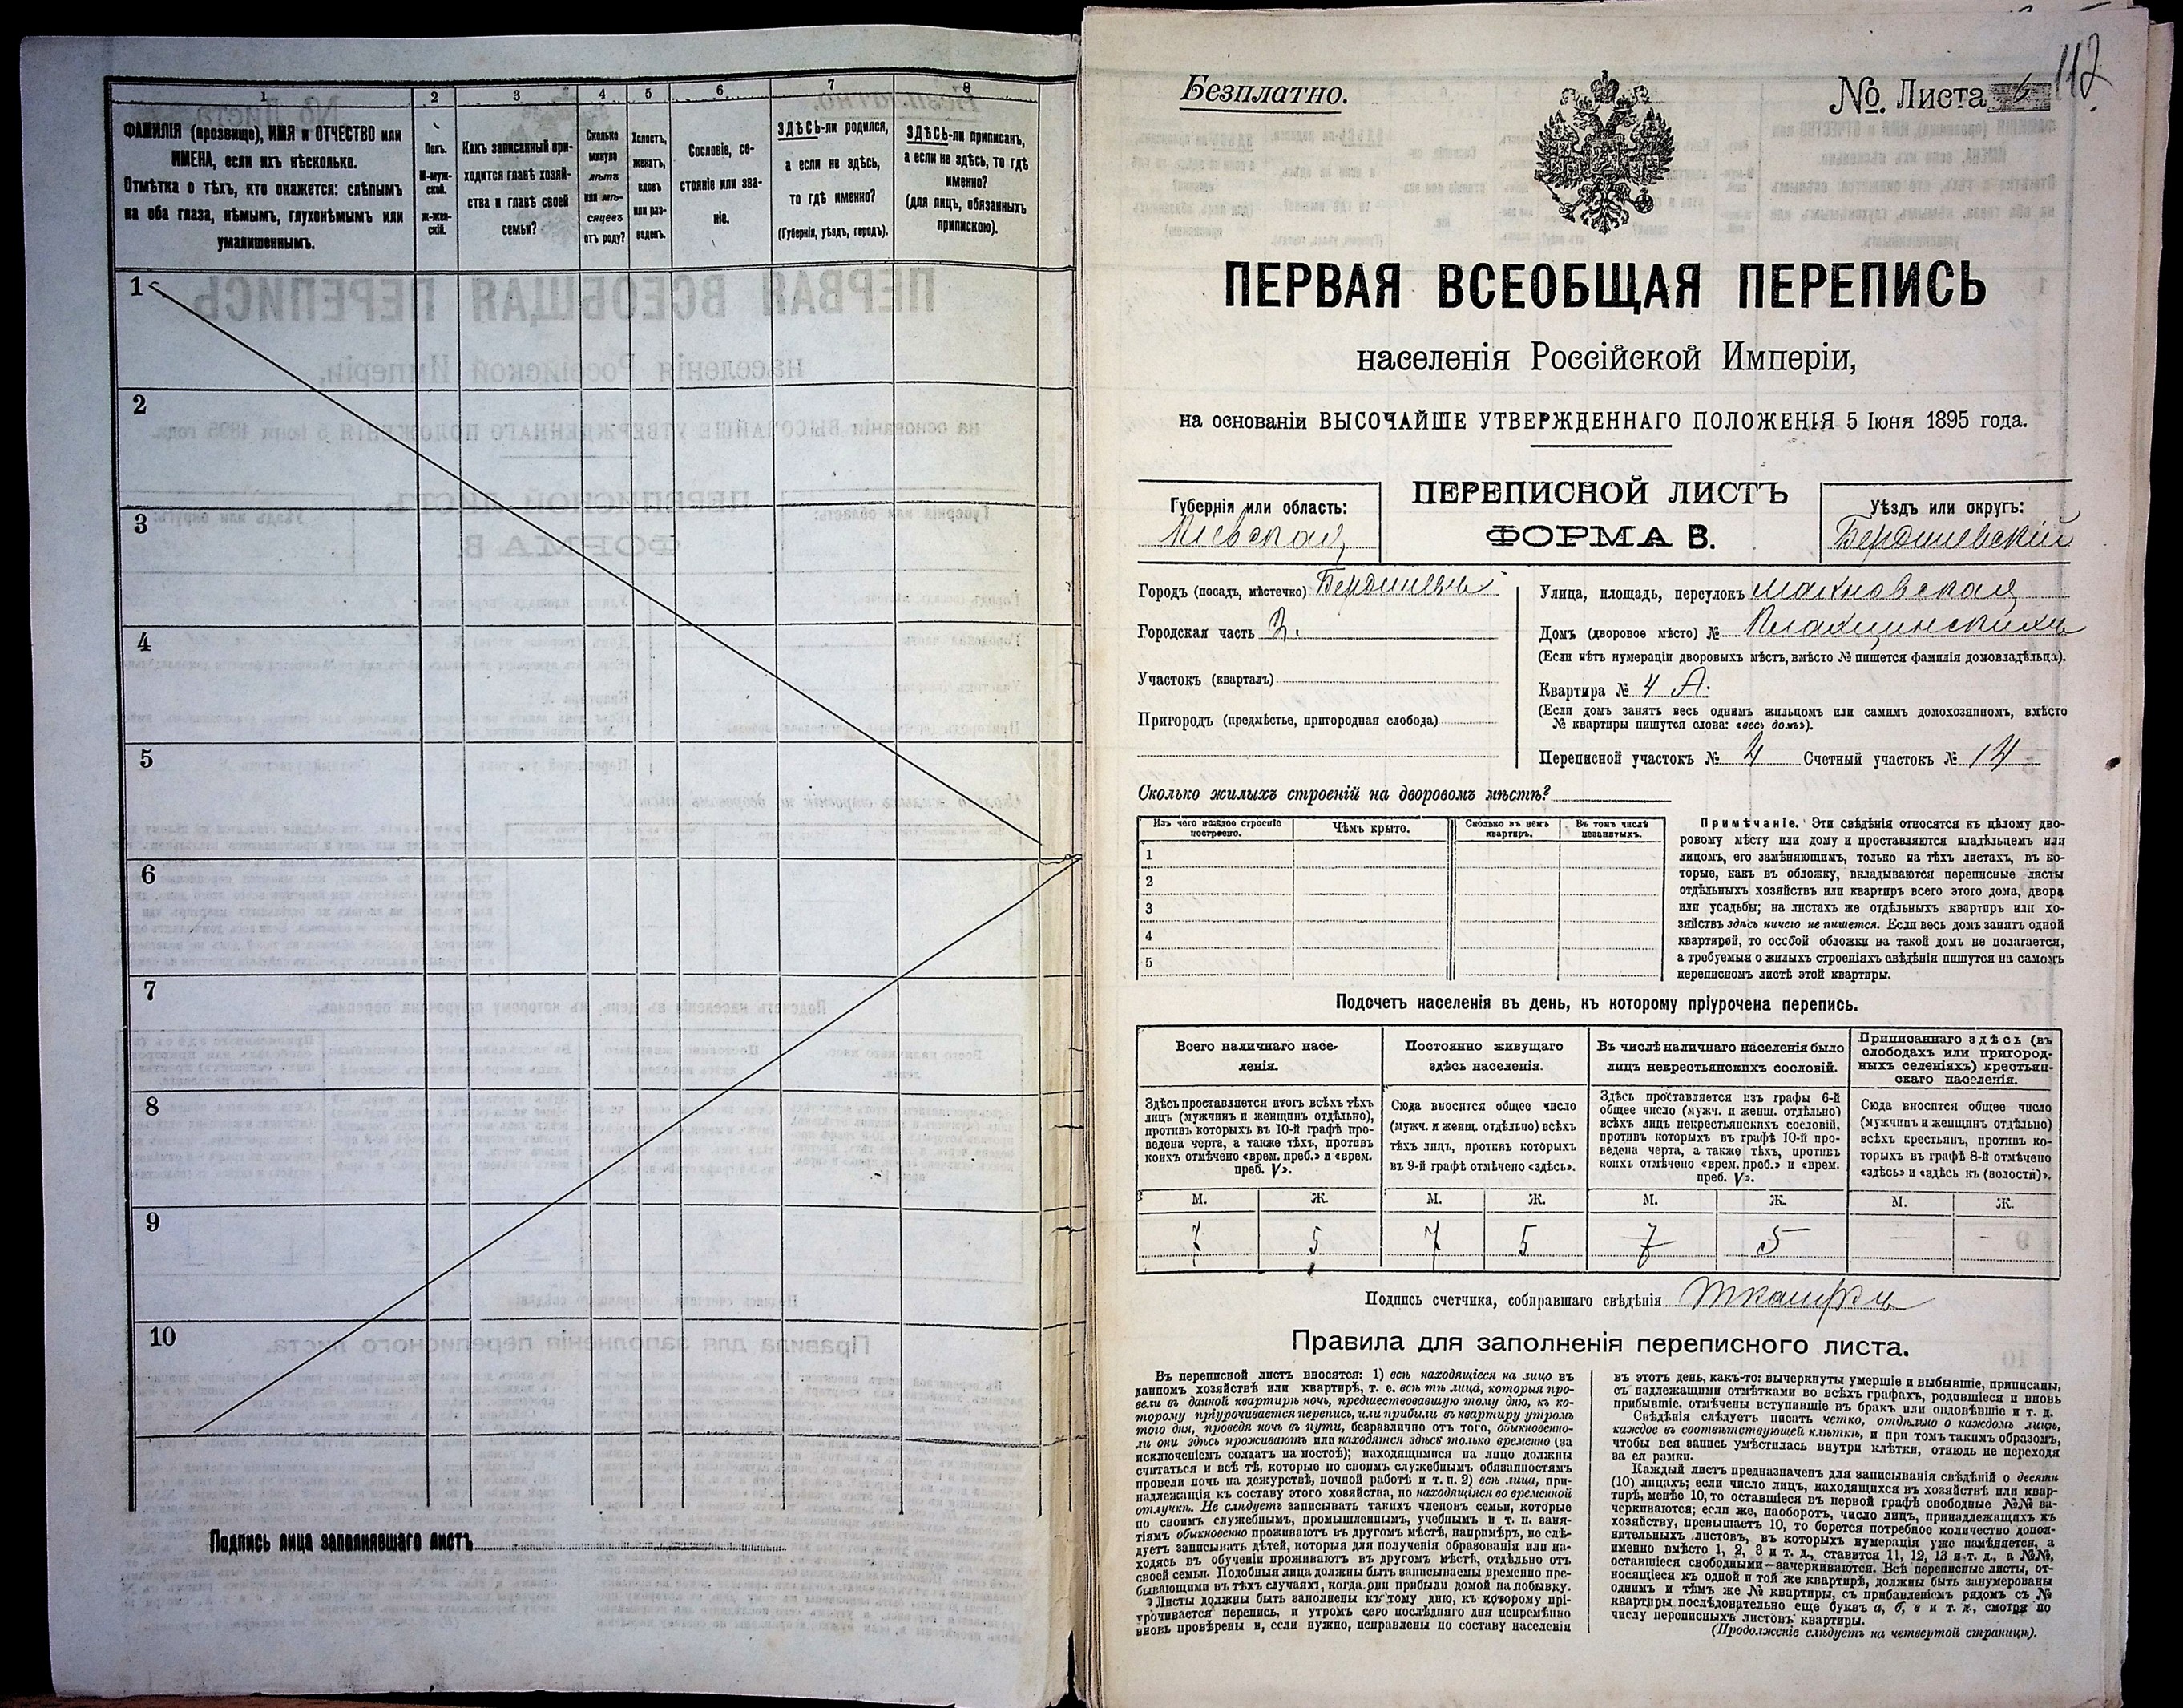 1
2
3
4
5
6
7
8
ФАМИЛІЯ (прозвище), ИМЯ и ОТЧЕСТВО или
ИМЕНА, если ихъ нѣсколько.
Отмѣтка о тѣхъ, кто окажется: слѣпымъ
на оба глаза, нѣмымъ, глухонѣмымъ или
умалишеннымъ.
Полъ.
М-муж-
ской.
ж-жен-
скій.
Какъ записанный при-
ходится главѣ хозяй-
ства и главѣ своей
семьи?
Сколько
минуло
лѣтъ
или мѣ-
сяцевъ
отъ роду?
Холостъ,
женатъ,
вдовъ
или раз-
веденъ.
Сословіе, со-
стояніе или зва-
ніе.
ЗДѢСЬ-ли родился,
а если не здѣсь,
то гдѣ именно?
(Губернія, уѣздъ, городъ).
ЗДѢСЬ-ли приписан,
а если не здѣсь, то гдѣ
именно?
(для лицъ, обязанныхъ
припискою).
1
2
3
4
5
6
7
8
9
10
Подпись лица заполнявшаго листъ
Безплатно.
№. Листа 6
112
ПЕРВАЯ ВСЕОБЩАЯ ПЕРЕПИСЬ
населенія Россійской Имперіи,
на основаніи ВЫСОЧАЙШЕ УТВЕРЖДЕННАГО ПОЛОЖЕНІЯ 5 Іюня 1895 года.
Губернія или область:
Кіевская
ПЕРЕПИСНОЙ ЛИСТЪ
ФОРМА В.
Уѣздъ или округъ:
Бердичевскій
Городъ (посадъ, мѣстечко) Бердичевъ
Городская часть 2.
Участокъ (кварталъ)
Пригородъ (предмѣстье, пригородная слобода)
Улица, площадь, переулокъ Махновская
Домъ (дворовое мѣсто) №
(Если нѣтъ нумераціи дворовыхъ мѣстъ, вмѣсто № пишется фамилія домовладѣльца).
Квартира № 4 А.
(Если домъ занятъ весь однимъ жильцомъ или самимъ домохозяиномъ, вмѣсто
№ квартиры пишутся слова: «весь домъ»).
Переписной участокъ № 4 Счетный участокъ № 14
Сколько жилыхъ строеній на дворовомъ мѣстѣ?
Изъ чего каждое строеніе
построено.
Чѣмъ крыто.
Сколько въ немъ
квартиръ.
Въ томъ числѣ
незанятыхъ.
1
2
3
4
5
Примѣчаніе. Эти свѣдѣнія относятся къ цѣлому дво-
ровому мѣсту или дому и проставляются владѣльцемъ или
лицомъ, его замѣняющимъ, только на тѣхъ листахъ, въ ко-
торые, какъ въ обложку, вкладываются переписные листы
отдѣльныхъ хозяйствъ или квартиръ всего этого дома, двора
или усадьбы; на листахъ же отдѣльныхъ квартиръ или хо-
зяйствъ здѣсь ничего не пишется. Если весь домъ занятъ одной
квартирой, то особой обложки на такой домъ не полагается,
а требуемыя о жилыхъ строеніяхъ свѣдѣнія пишутся на самомъ
переписномъ листѣ этой квартиры.
Подсчетъ населенія въ день, къ которому пріурочена перепись.
Всего наличнаго насе-
ленія.
Постоянно живущаго
здѣсь населенія.
Въ числѣ наличнаго населенія было
лицъ некрестьянскихъ сословій.
Приписаннаго здѣсь (въ
слободахъ или пригород-
ныхъ селеніяхъ) крестьян-
скаго населенія.
Здѣсь проставляется итогъ всѣхъ тѣхъ
лицъ (мужчинъ и женщинъ отдѣльно),
противъ которыхъ въ 10-й графѣ про-
ведена черта, а также тѣхъ, противъ
коихъ отмѣчено «врем. преб.» и «врем.
преб. V».
Сюда вносится общее число
(мужч. и женщ. отдѣльно) всѣхъ
тѣхъ лицъ, противъ которыхъ
въ 9-й графѣ отмѣчено «здѣсь».
Здѣсь проставляется изъ графы 6-й
общее число (мужч. и женщ. отдѣльно)
всѣхъ лицъ некрестьянскихъ сословій,
противъ которыхъ въ графѣ 10-й про-
ведена черта, а также тѣхъ, противъ
коихъ отмѣчено «врем. преб.» и «врем.
преб. V».
Сюда вносится общее число
(мужчинъ и женщинъ отдѣльно)
всѣхъ крестьянъ, противъ ко-
торыхъ въ графѣ 8-й отмѣчено
«здѣсь» и «здѣсь къ (волости)».
М. Ж. М. Ж. М. Ж. М. Ж.
7 5 7 5 7 5 — -
Подпись счетчика, собиравшаго свѣдѣнія
Правила для заполненія переписного листа.
Въ переписной листъ вносятся: 1) всѣ находящіеся на лицо въ
данномъ хозяйствѣ или квартирѣ, т. е. всѣ тѣ лица, которыя про-
вели въ данной квартирѣ ночь, предшествовавшую тому дню, къ ко-
торому пріурочивается перепись, или прибыли въ квартиру утромъ
того дня, проведя ночь въ пути, безразлично отъ того, обыкновенно-
ли они здѣсь проживаютъ или находятся здѣсь только временно (за
исключеніемъ солдатъ на постоѣ); находящимися на лицо должны
считаться и всѣ тѣ, которые по своимъ служебнымъ обязанностямъ
провели ночь на дежурствѣ, ночной работѣ и т. п. 2) всѣ лица, при-
надлежащія къ составу этого хозяйства, но находящіяся во временной
отлучкѣ. Не слѣдуетъ записывать такихъ членовъ семьи, которые
по своимъ служебнымъ, промышленнымъ, учебнымъ и т. п. заня-
тіямъ обыкновенно проживаютъ въ другомъ мѣстѣ, напримѣръ, не слѣ-
дуетъ записывать дѣтей, которыя для полученія образованія или на-
ходясь въ обученіи проживаютъ въ другомъ мѣстѣ, отдѣльно отъ
своей семьи. Подобныя лица должны быть записываемы временно пре-
бывающими въ тѣхъ случаяхъ, когда они прибыли домой на побывку.
Листы должны быть заполнены къ тому дню, къ которому прі-
урочивается перепись, и утромъ сего послѣдняго дня непремѣнно
вновь провѣрены и, если нужно, исправлены по составу населенія
въ этотъ день, какъ-то: вычеркнуты умершіе и выбывшіе, приписаны,
съ надлежащими отмѣтками во всѣхъ графахъ, родившіеся и вновь
прибывшіе, отмѣчены вступившіе въ бракъ или овдовѣвшіе и т. д.
Свѣдѣнія слѣдуетъ писать четко, отдѣльно о каждомъ лицѣ,
каждое въ соотвѣтствующей клѣткѣ, и при томъ такимъ образомъ,
чтобы вся запись умѣстилась внутри клѣтки, отнюдь не переходя
за ея рамки.
Каждый листъ предназначенъ для записыванія свѣдѣній о десяти
(10) лицахъ; если число лицъ, находящихся въ хозяйствѣ или квар-
тирѣ, менѣе 10, то оставшіеся въ первой графѣ свободные №№ за-
черкиваются; если же, наоборотъ, число лицъ, принадлежащихъ къ
хозяйству, превышаетъ 10, то берется потребное количество допол-
нительныхъ листовъ, въ которыхъ нумерація уже измѣняется, а
именно вмѣсто 1, 2, 3 и т. д., ставится 11, 12, 13 и т. д., а №№,
оставшіеся свободными—зачеркиваются. Всѣ переписные листы, от-
носящіеся къ одной и той же квартирѣ, должны быть занумерованы
однимъ и тѣмъ же № квартиры, съ прибавленіемъ рядомъ съ №
квартиры послѣдовательно еще буквъ а, б, в и т. д., смотря по
числу переписныхъ листовъ квартиры.
(Продолженіе слѣдуетъ на четвертой страницѣ).